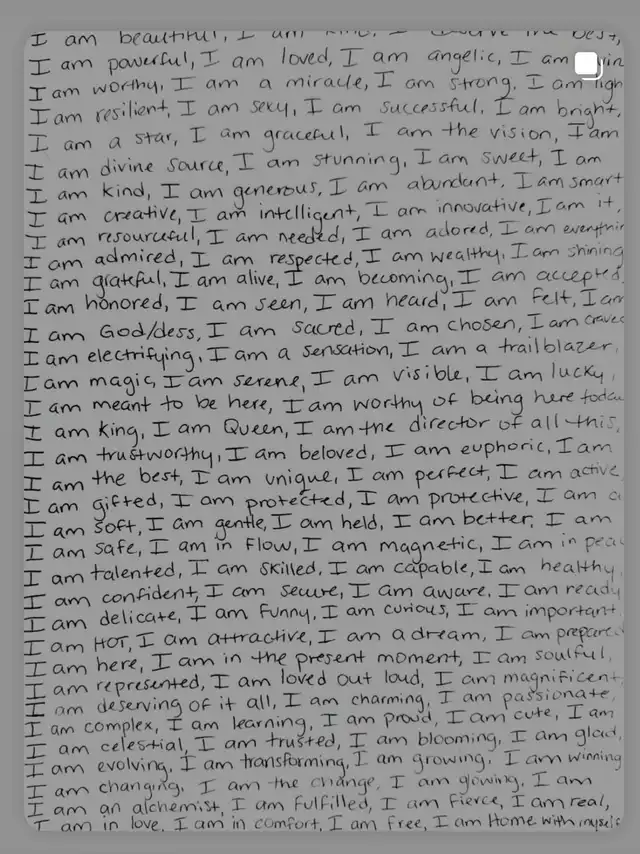 I am beautiful, I am kind, I deserve the best,
I am powerful, I am loved, I am angelic, I am
I am worthy, I am a miracle, I am strong, I am
I am resilient, I am sexy, I am successful, I am bright,
I am a star, I am graceful, I am the vision, I am
I am divine source, I am stunning, I am sweet, I am
I am kind, I am generous, I am abundant, I am smart
I am creative, I am intelligent, I am innovative, I am it,
I am resourceful, I am needed, I am adored, I am everythin
I am admired, I am respected, I am wealthy, I am shining
I am grateful, I am alive, I am becoming, I am accepted
I am honored, I am seen, I am heard, I am felt, I am
I am God/dess, I am sacred, I am chosen, I am craved
I am electrifying, I am a sensation, I am a trailblazer,
I am magic, I am serene, I am visible, I am lucky,
I am meant to be here, I am worthy of being here today
I am King, I am Queen, I am the director of all this,
I am trustworthy, I am beloved, I am euphoric, I am
I am the best, I am unique, I am perfect, I am active
I am gifted, I am protected, I am protective, I am a
I am soft, I am gentle, I am held, I am better, I am
I am safe, I am in flow, I am magnetic, I am in pea
I am talented, I am skilled, I am capable, I am healthy
I am confident, I am secure, I am aware, I am ready
I am delicate, I am funny, I am curious, I am important
I am HOT, I am attractive, I am a dream, I am prepared
I am here, I am in the present moment, I am soulful,
I am represented, I am loved out loud, I am magnificent,
I am deserving of it all, I am charming, I am passionate,
I am complex, I am learning, I am proud, I am cute, I am
I am celestial, I am trusted, I am blooming, I am glad,
I am evolving, I am transforming, I am growing, I am winning
I am changing, I am the change, I am glowing, I am
I am an alchemist, I am fulfilled, I am fierce, I am real,
I am in love, I am in comfort, I am free, I am Home with myself